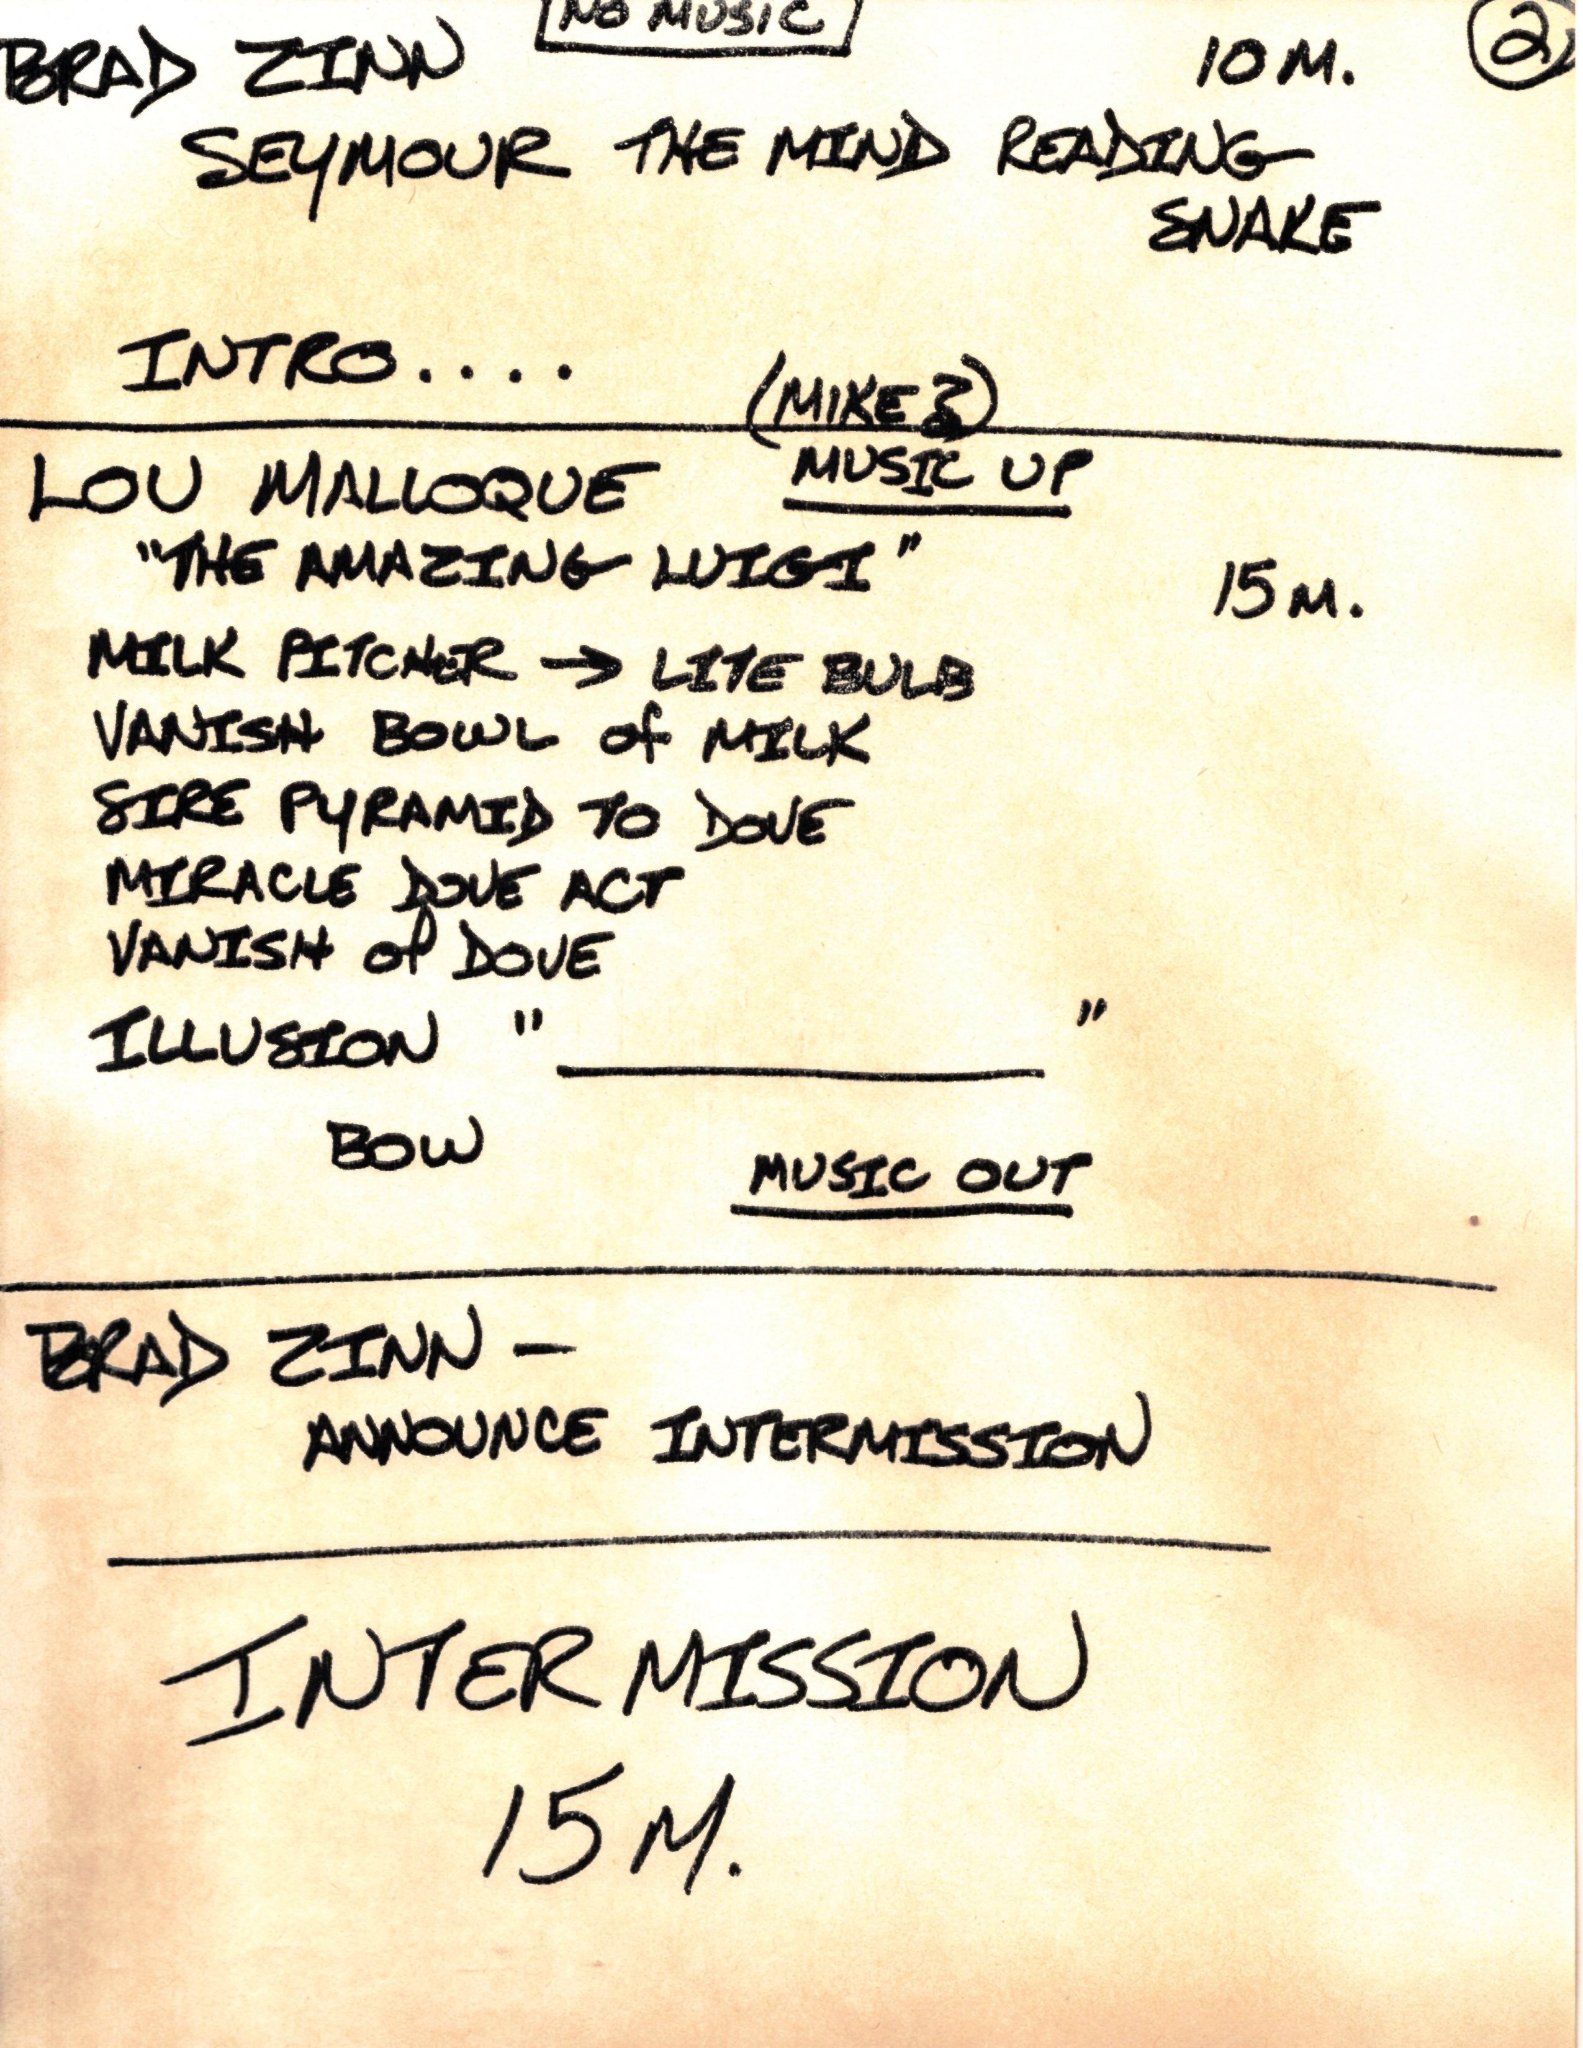 NO MUSIC
BRAD ZINN 10 M. 2
SEYMOUR THE MIND READING
SNAKE
INTRO....
(MIKE
LOU MALLOQUE MUSIC UP
"THE AMAZING LUIGI" 15 M.
MILK PITCHER → LITE BULB
VANISH BOWL of MILK
SIRE PYRAMID TO DOVE
MIRACLE DOVE ACT
VANISH of DOVE
ILLUSION "__________"
BOW MUSIC OUT
BRAD ZINN —
ANNOUNCE INTERMISSION
INTERMISSION
15 M.